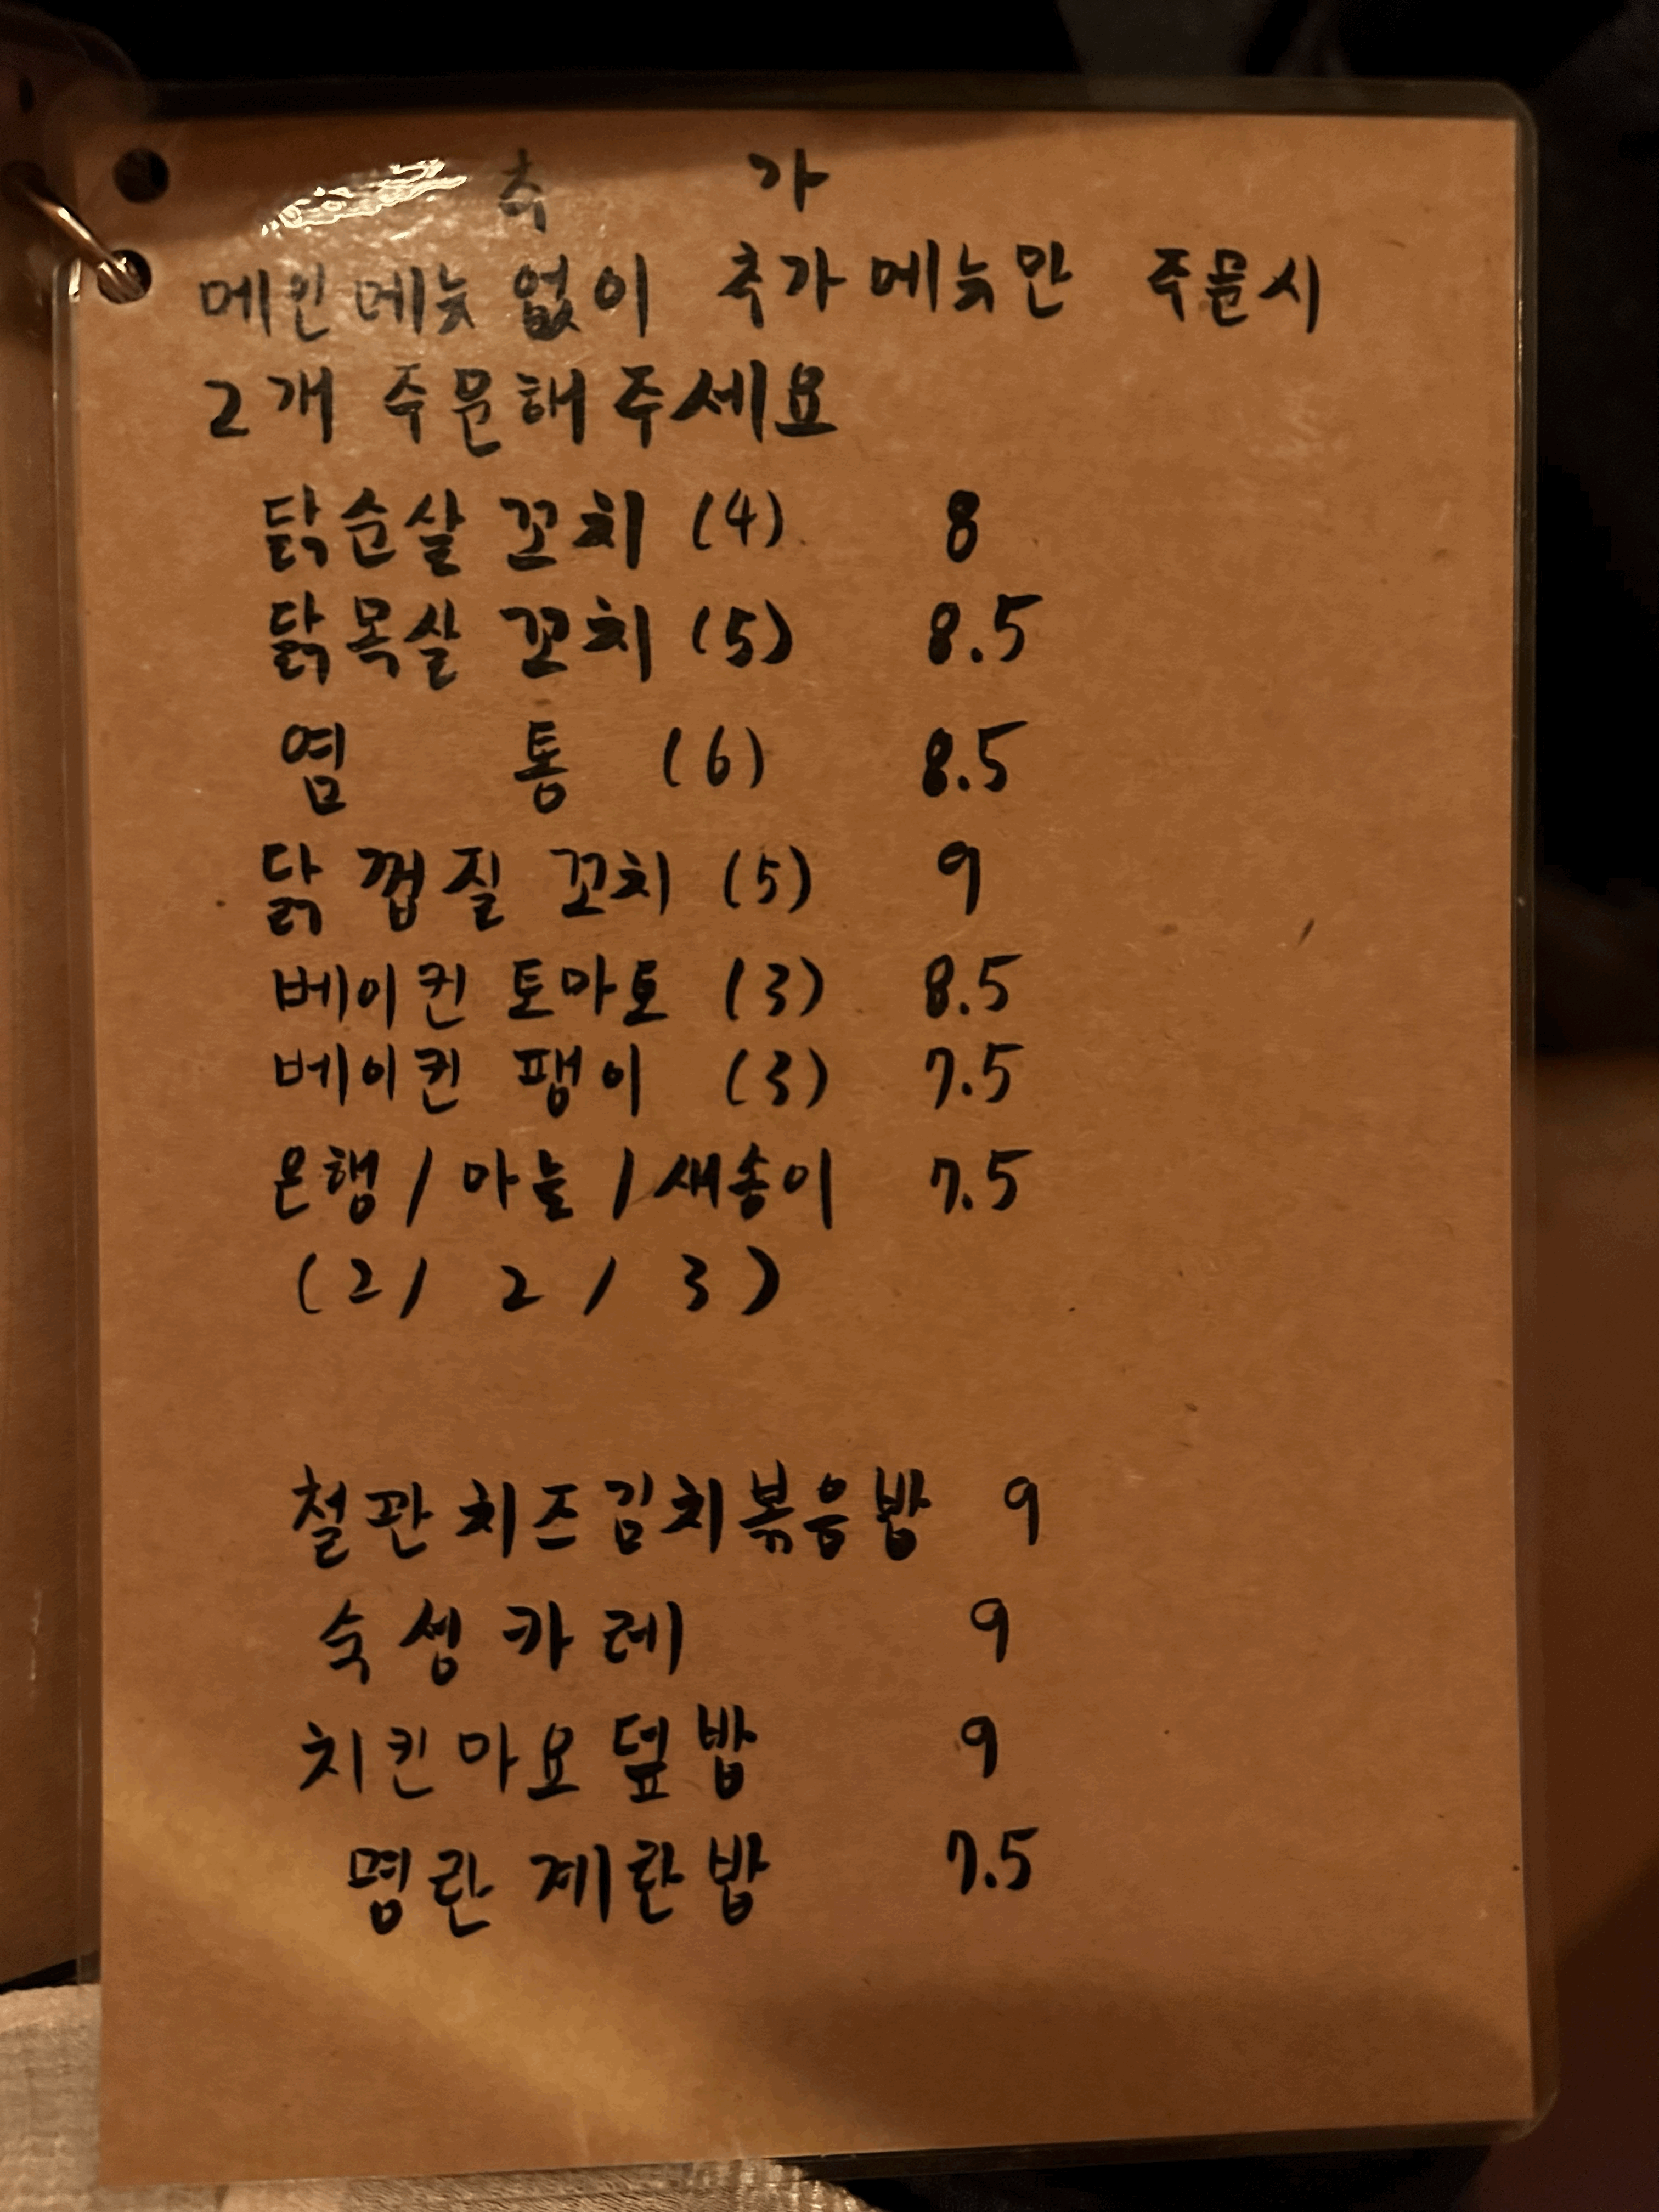 추 가
메인메뉴 없이 추가메뉴만 주문시
2개 주문해주세요
닭순살 꼬치 (4) 8
닭목살 꼬치 (5) 8.5
염 통 (6) 8.5
닭 껍질 꼬치 (5) 9
베이컨 토마토 (3) 8.5
베이컨 팽이 (3) 7.5
은행 / 마늘 / 새송이 7.5
(2 / 2 / 3)
철판치즈김치볶음밥 9
숙성카레 9
치킨마요덮밥 9
명란계란밥 7.5